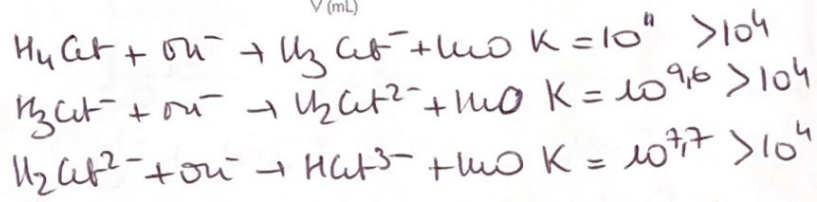 V (mL)
H₄Cit + OH⁻ → H₃Cit⁻ + H₂O K = 10¹¹ > 10⁴
H₃Cit⁻ + OH⁻ → H₂Cit²⁻ + H₂O K = 10⁹,⁶ > 10⁴
H₂Cit²⁻ + OH⁻ → HCit³⁻ + H₂O K = 10⁷,⁷ > 10⁴